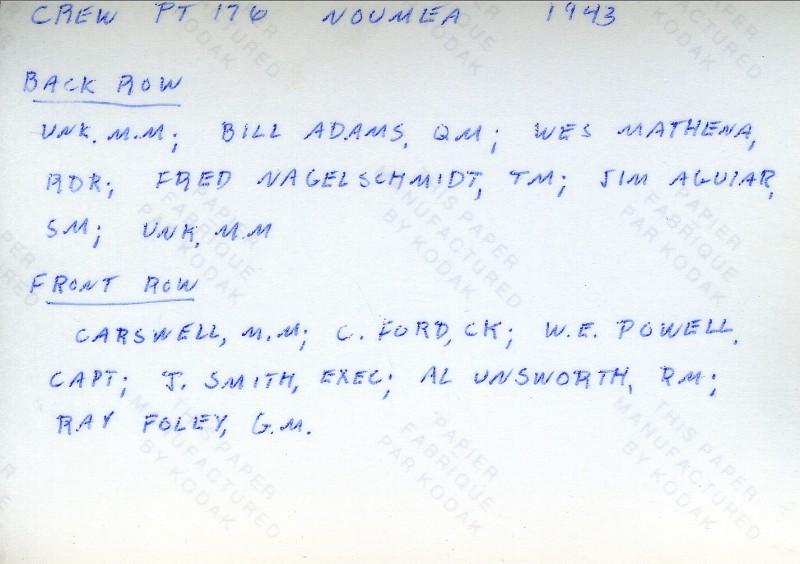 CREW PT 176 NOUMEA 1943
BACK ROW
UNK. M.M; BILL ADAMS, QM; WES MATHENA,
RDR; FRED NAGELSCHMIDT, TM; JIM AGUIAR,
SM; UNK, M.M
FRONT ROW
CARSWELL, M.M; C. FORD, CK; W.E. POWELL,
CAPT; J. SMITH, EXEC; AL UNSWORTH, RM;
RAY FOLEY, G.M.
THIS PAPER
MANUFACTURED
BY KODAK
PAPIER
FABRIQUE
PAR KODAK